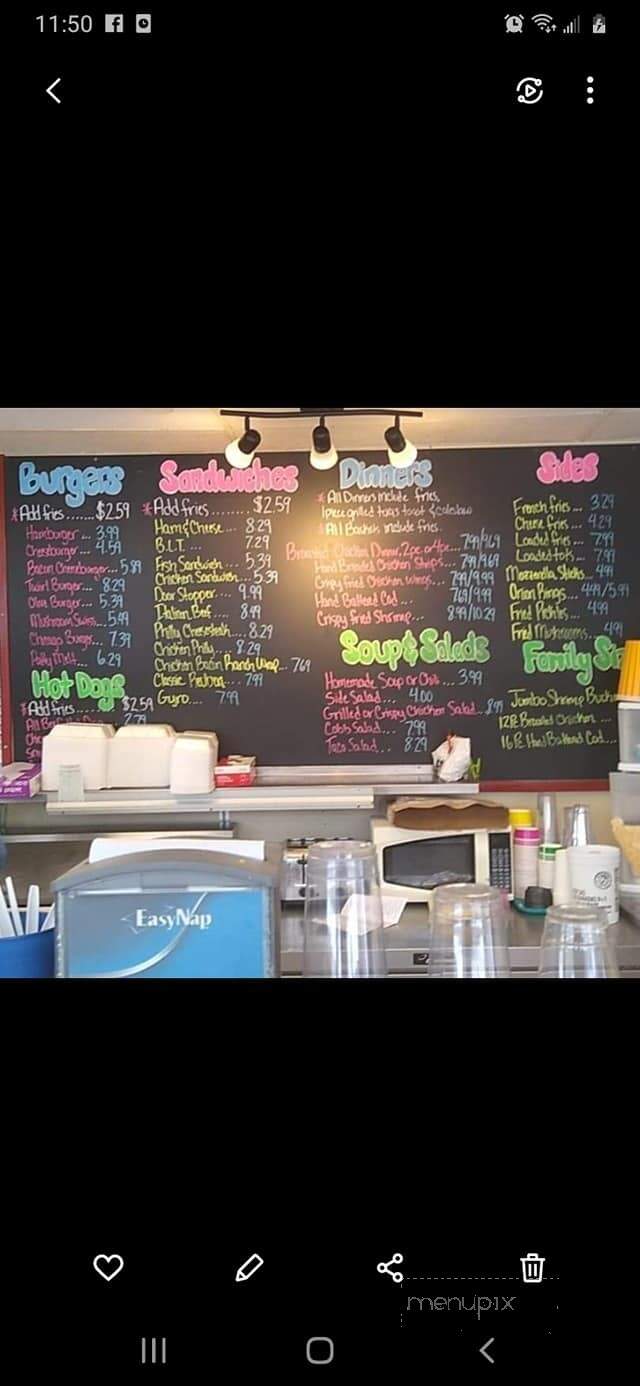 11:50
Burgers
*Add fries.......$2.59
Hamburger... 3.99
Cheeseburger... 4.59
Bacon Cheeseburger... 5.89
Twirl Burger... 8.29
Olive Burger... 5.39
Mushroom Swiss... 5.49
Chicago Burger... 7.39
Patty Melt... 6.29
Hot Dogs
*Add fries...... $2.59
2.79
Sandwiches
*Add fries........ $2.59
Ham & Cheese... 8.29
B.L.T. ... 7.29
Fish Sandwich... 5.39
Chicken Sandwich... 5.39
Door Stopper... 9.99
Italian Beef... 8.99
Philly Cheesesteak... 8.29
Chicken Philly... 8.29
Chicken Bacon Ranch Wrap... 7.69
Classic Reuben... 7.99
Gyro.... 7.99
Dinners
*All Dinners include fries,
1 piece grilled texas toast & coleslaw
All Baskets include fries.
Broasted Chicken Dinner, 2pc or 4pc...
Hand Breaded Chicken Strips... 7.99/9.69
Crispy fried Chicken wings... 7.99/9.99
Hand Battered Cod... 7.69/9.99
Crispy fried Shrimp... 8.99/10.29
Soup & Salads
Homemade Soup or Chili... 3.99
Side Salad... 4.00
Grilled or Crispy Chicken Salad... 8.99
Cobb Salad... 7.99
Taco Salad... 8.29
Sides
French fries... 3.29
Cheese fries... 4.29
Loaded fries... 7.99
Loaded tots... 7.99
Mozzarella Sticks... 4.99
Onion Rings... 4.99/5.99
Fried Pickles... 4.99
Fried Mushrooms... 4.99
Family
Jumbo Shrimp
12 Pc Broasted Chicken ...
16 Pc Hand Battered Cod...
EasyNap
menupix